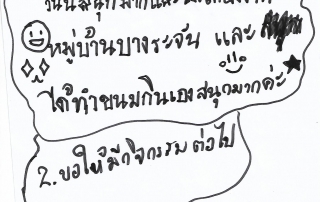 วันนี้สนุกมากและ
หมู่บ้านบางระจัน และ
ได้ทำขนมกินเองสนุกมากค่ะ
2. ขอให้มีกิจกรรมต่อไป